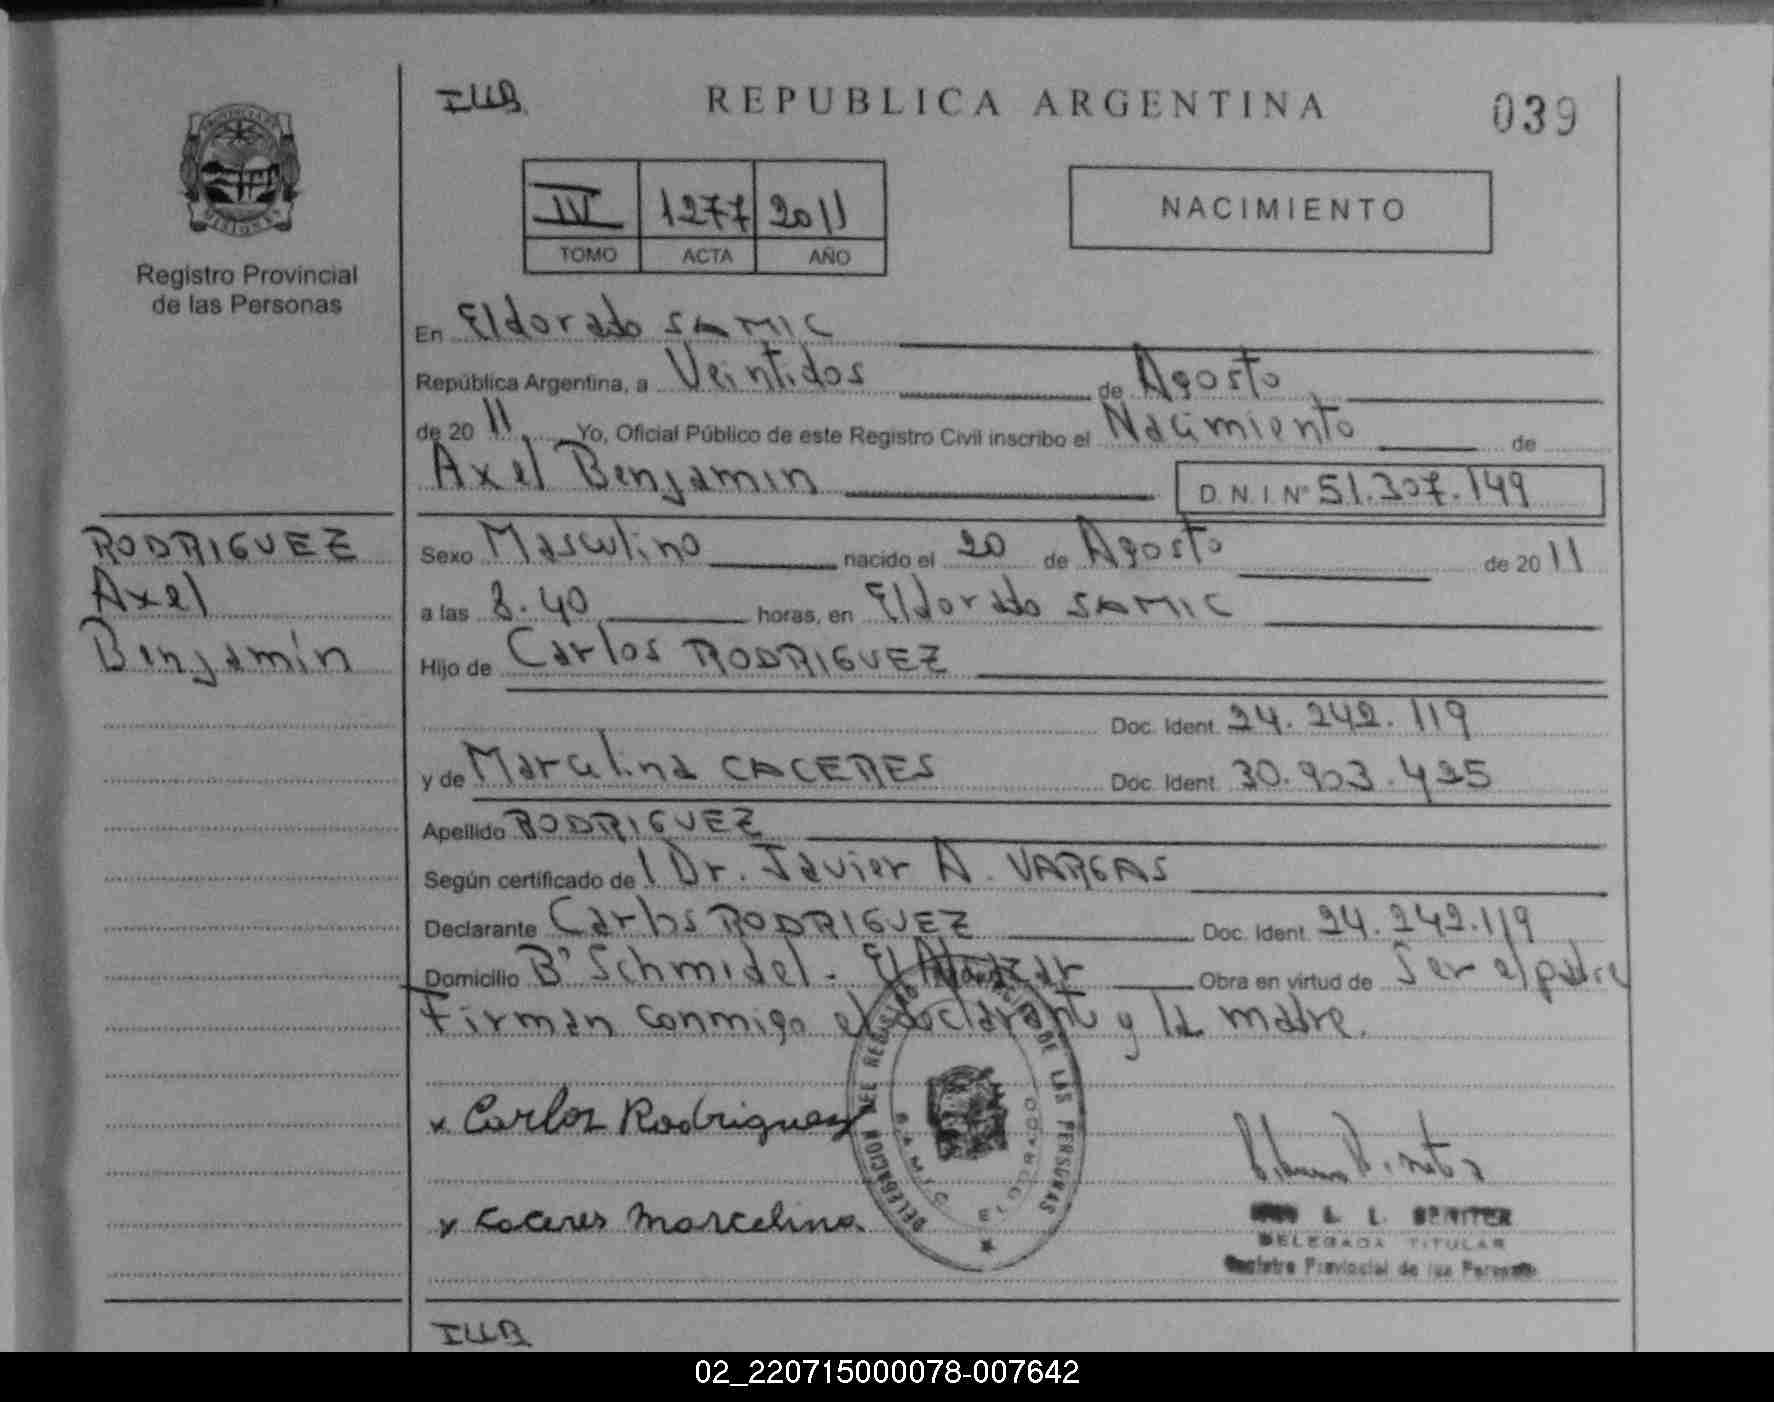 IUB
REPUBLICA ARGENTINA
039
PROVINCIA DE
MISIONES
Registro Provincial
de las Personas
IV 1277 2011
TOMO ACTA AÑO
NACIMIENTO
En Eldorado SAMIC
República Argentina, a Veintidos de Agosto
de 20 11 Yo, Oficial Público de este Registro Civil inscribo el Nacimiento de
Axel Benjamin D.N.I.Nº 51.307.149
RODRIGUEZ
Axel
Benjamín
Sexo Masculino nacido el 20 de Agosto de 20 11
a las 8.40 horas, en Eldorado SAMIC
Hijo de Carlos RODRIGUEZ
Doc. Ident. 24.242.119
y de Marcelina CACERES Doc. Ident. 30.903.425
Apellido RODRIGUEZ
Según certificado de l Dr. Javier A. VARGAS
Declarante Carlos RODRIGUEZ Doc. Ident. 24.242.119
Domicilio Bº Schmidel - El Obra en virtud de Ser el padre
Firman conmigo el declarante y la madre.
x Carlos Rodriguez
x Caceres Marcelina.
DELEGACION DEL REGISTRO DE LAS PERSONAS
SAMIC
ELDORADO
L. BENITEZ
DELEGADA TITULAR
Registro Provincial de las Personas
IUB
02_220715000078-007642